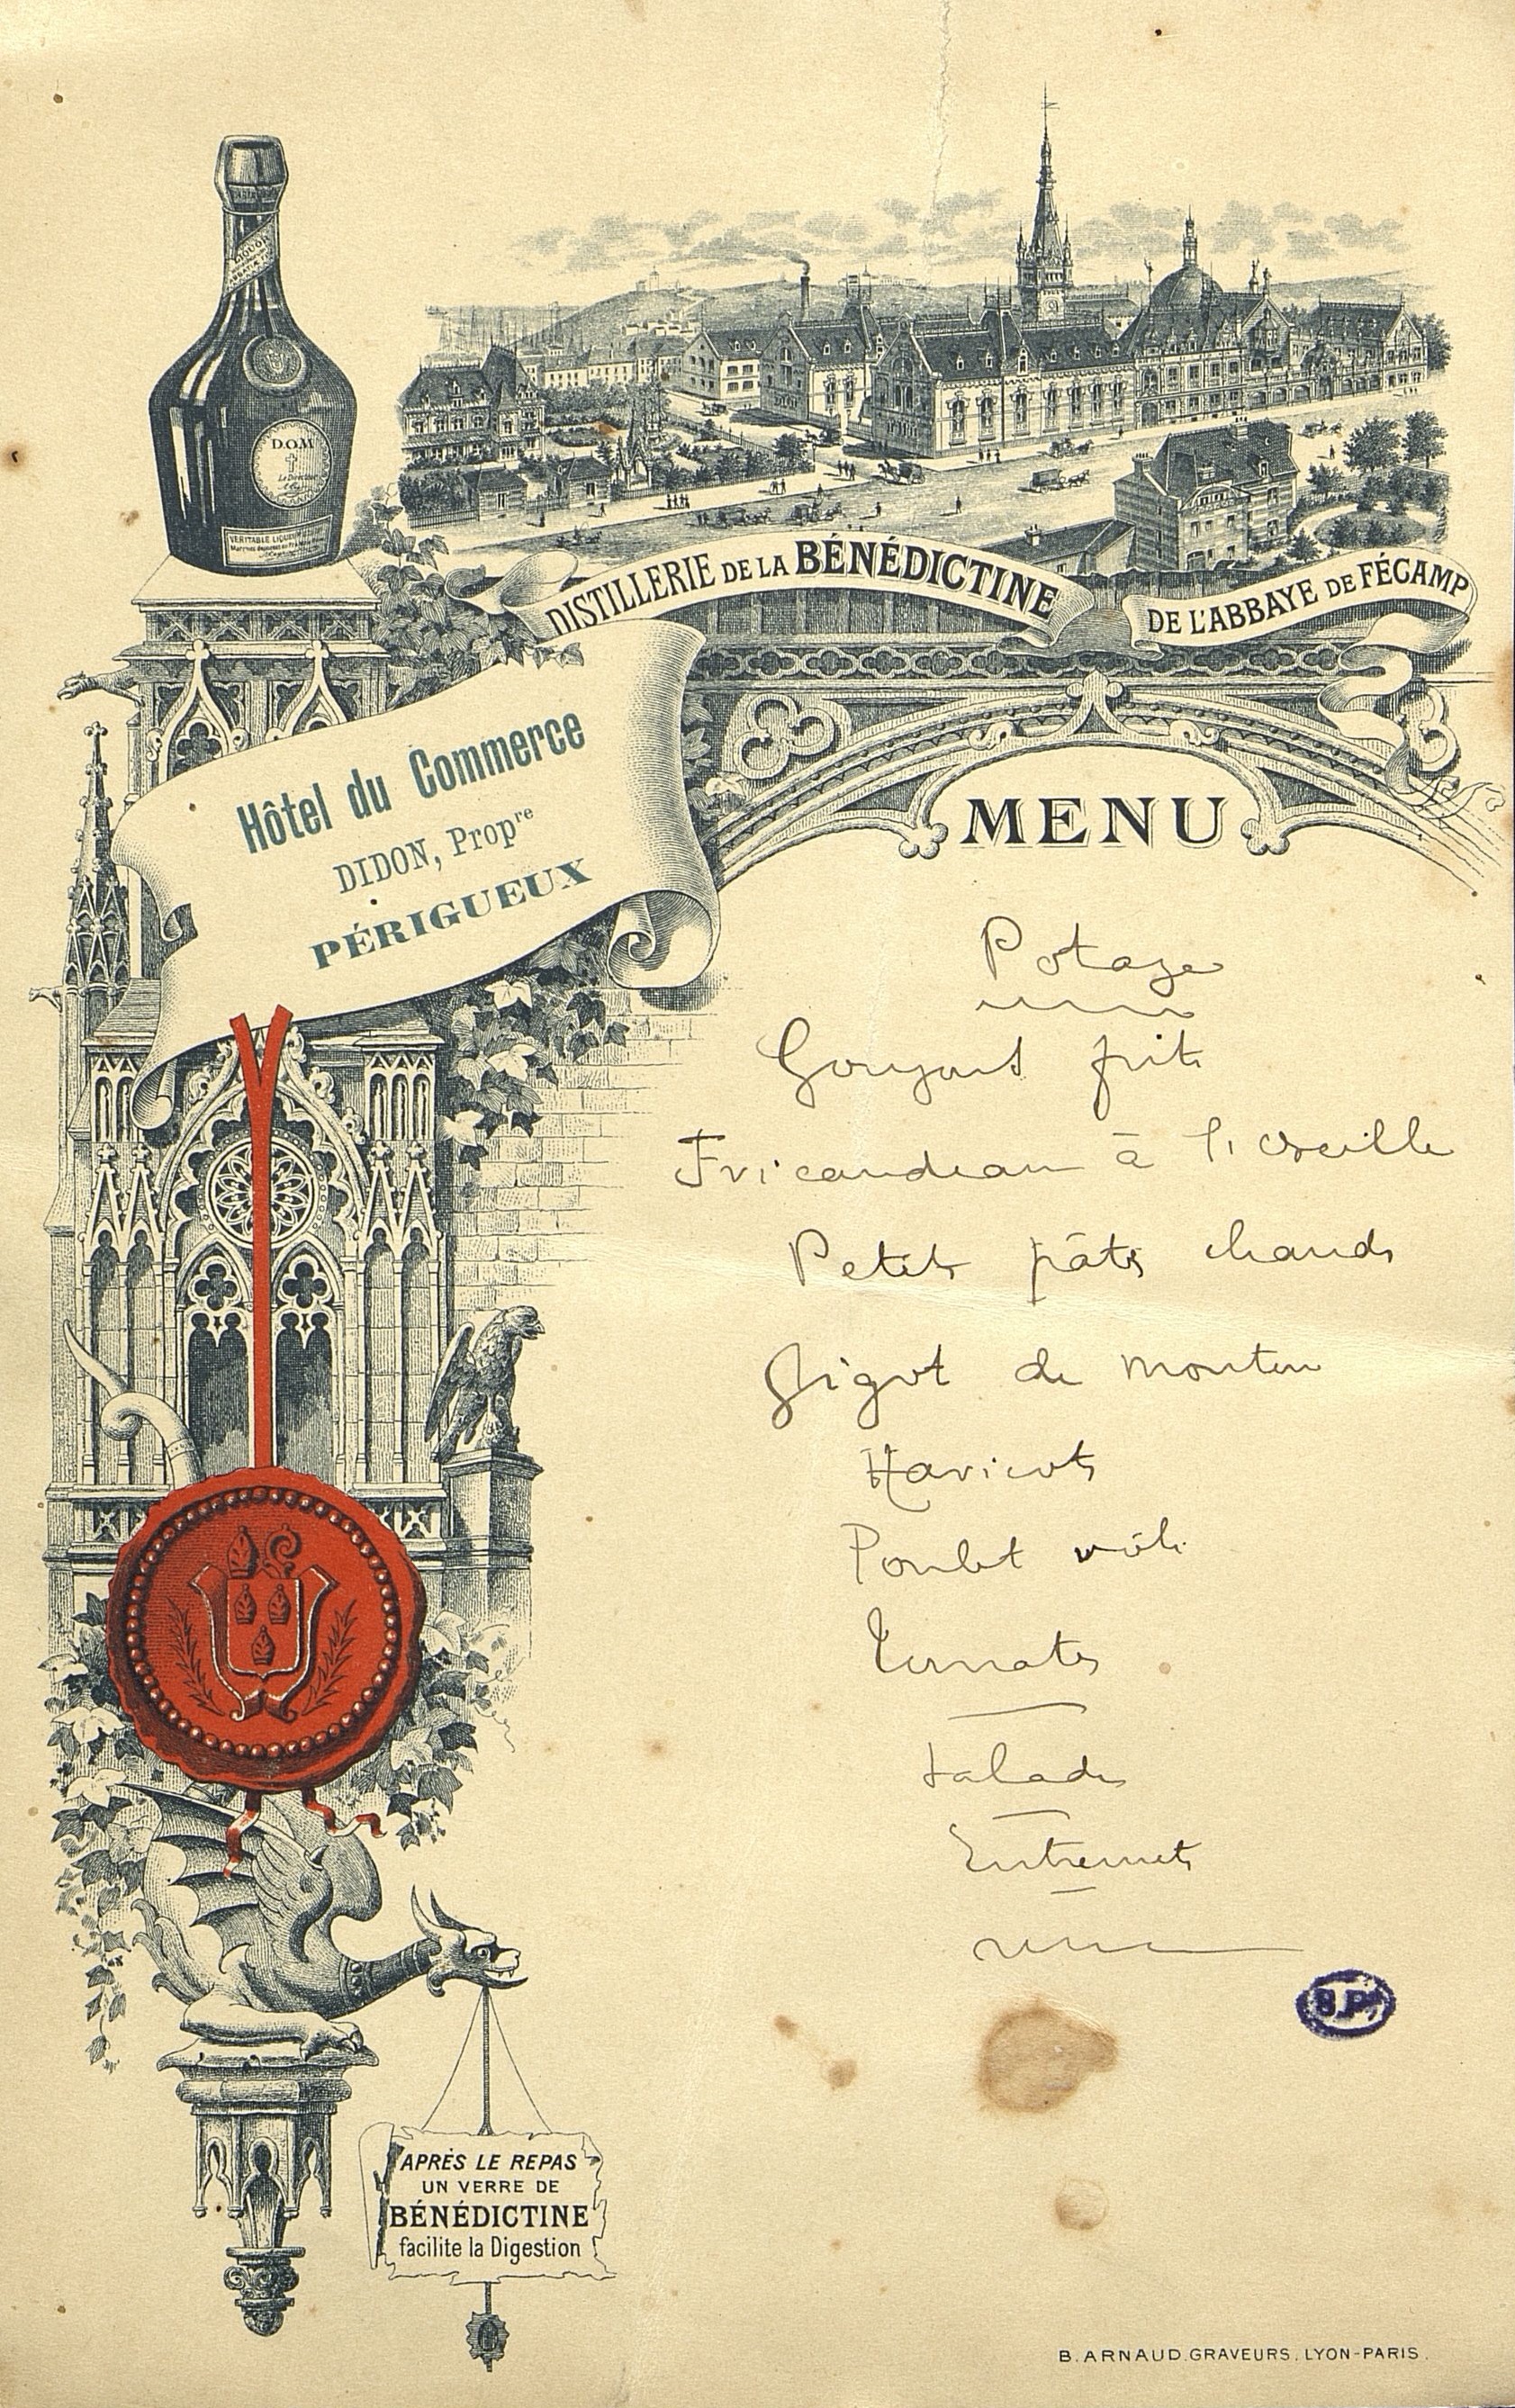 LIQUOR
D.O.M
VÉRITABLE LIQUEUR
DISTILLERIE DE LA BÉNÉDICTINE
DE L'ABBAYE DE FÉCAMP
Hôtel du Commerce
DIDON, Propre
PÉRIGUEUX
MENU
Potage
Goujons frits
Fricandeau à l'oseille
Petits pâtés chauds
Gigot de mouton
Haricots
Poulet rôti
Tomates
Salade
Entremets
B.P.
APRÈS LE REPAS
UN VERRE DE
BÉNÉDICTINE
facilite la Digestion
B. ARNAUD. GRAVEURS. LYON-PARIS.